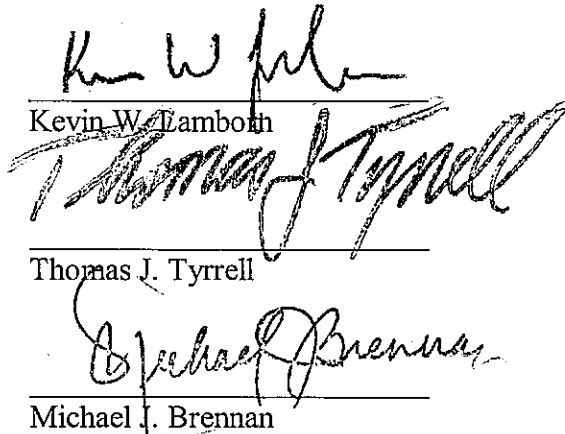 Kevin W. Lamborn
Thomas J Tyrrell
Thomas J. Tyrrell
Michael J. Brennan
Michael J. Brennan